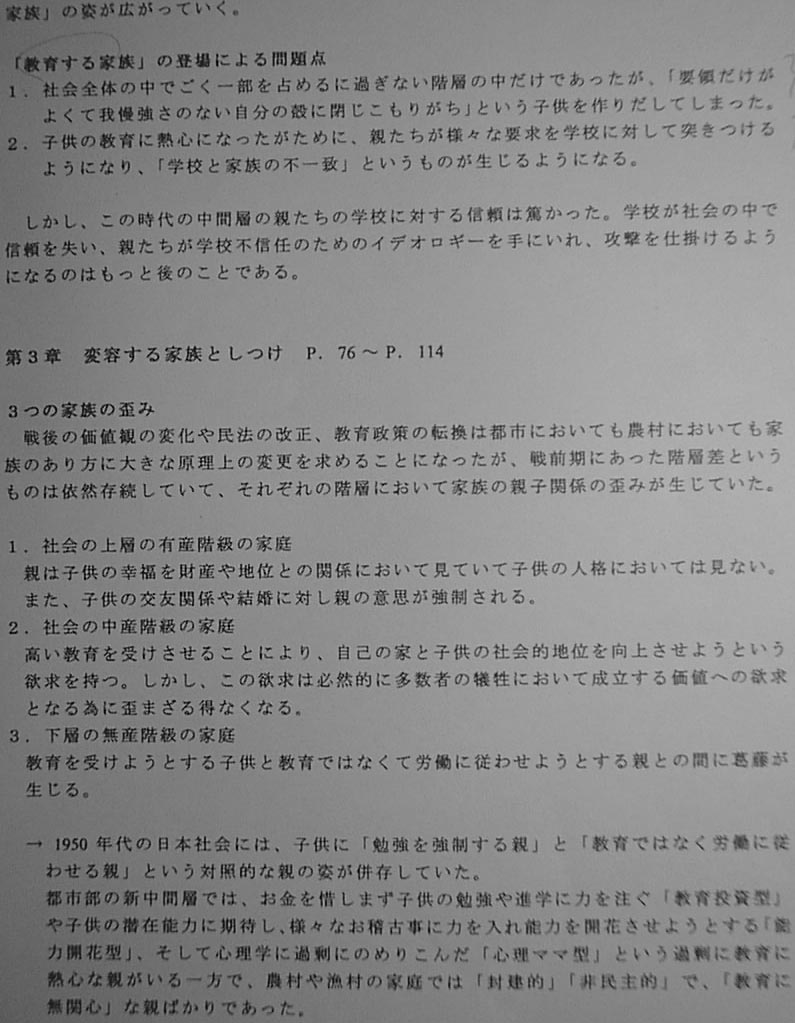 家族」の姿が広がっていく。
「教育する家族」の登場による問題点
1．社会全体の中でごく一部を占めるに過ぎない階層の中だけであったが、「要領だけが
よくて我慢強さのない自分の殻に閉じこもりがち」という子供を作りだしてしまった。
2．子供の教育に熱心になったがために、親たちが様々な要求を学校に対して突きつける
ようになり、「学校と家族の不一致」というものが生じるようになる。
しかし、この時代の中間層の親たちの学校に対する信頼は篤かった。学校が社会の中で
信頼を失い、親たちが学校不信任のためのイデオロギーを手にいれ、攻撃を仕掛けるよう
になるのはもっと後のことである。
第3章　変容する家族としつけ　P．76～P．114
3つの家族の歪み
戦後の価値観の変化や民法の改正、教育政策の転換は都市においても農村においても家
族のあり方に大きな原理上の変更を求めることになったが、戦前期にあった階層差という
ものは依然存続していて、それぞれの階層において家族の親子関係の歪みが生じていた。
1．社会の上層の有産階級の家庭
親は子供の幸福を財産や地位との関係において見ていて子供の人格においては見ない。
また、子供の交友関係や結婚に対し親の意思が強制される。
2．社会の中産階級の家庭
高い教育を受けさせることにより、自己の家と子供の社会的地位を向上させようという
欲求を持つ。しかし、この欲求は必然的に多数者の犠牲において成立する価値への欲求
となる為に歪まざる得なくなる。
3．下層の無産階級の家庭
教育を受けようとする子供と教育ではなくて労働に従わせようとする親との間に葛藤が
生じる。
→ 1950年代の日本社会には、子供に「勉強を強制する親」と「教育ではなく労働に従
わせる親」という対照的な親の姿が併存していた。
都市部の新中間層では、お金を惜しまず子供の勉強や進学に力を注ぐ「教育投資型」
や子供の潜在能力に期待し、様々なお稽古事に力を入れ能力を開花させようとする「能
力開花型」、そして心理学に過剰にのめりこんだ「心理ママ型」という過剰に教育に
熱心な親がいる一方で、農村や漁村の家庭では「封建的」「非民主的」で、「教育に
無関心」な親ばかりであった。